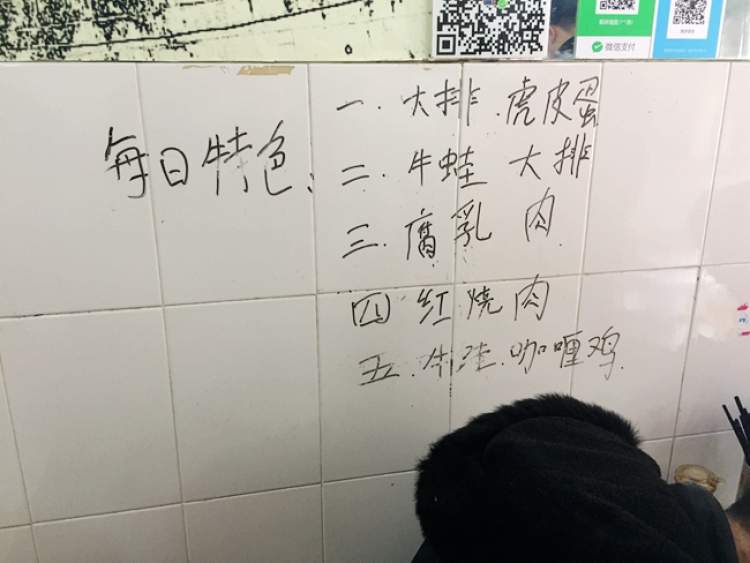 微信支付
每日特色:
一.大排.虎皮蛋
二.牛蛙 大排
三.腐乳 肉
四 红烧肉
五.牛蛙.咖喱鸡.